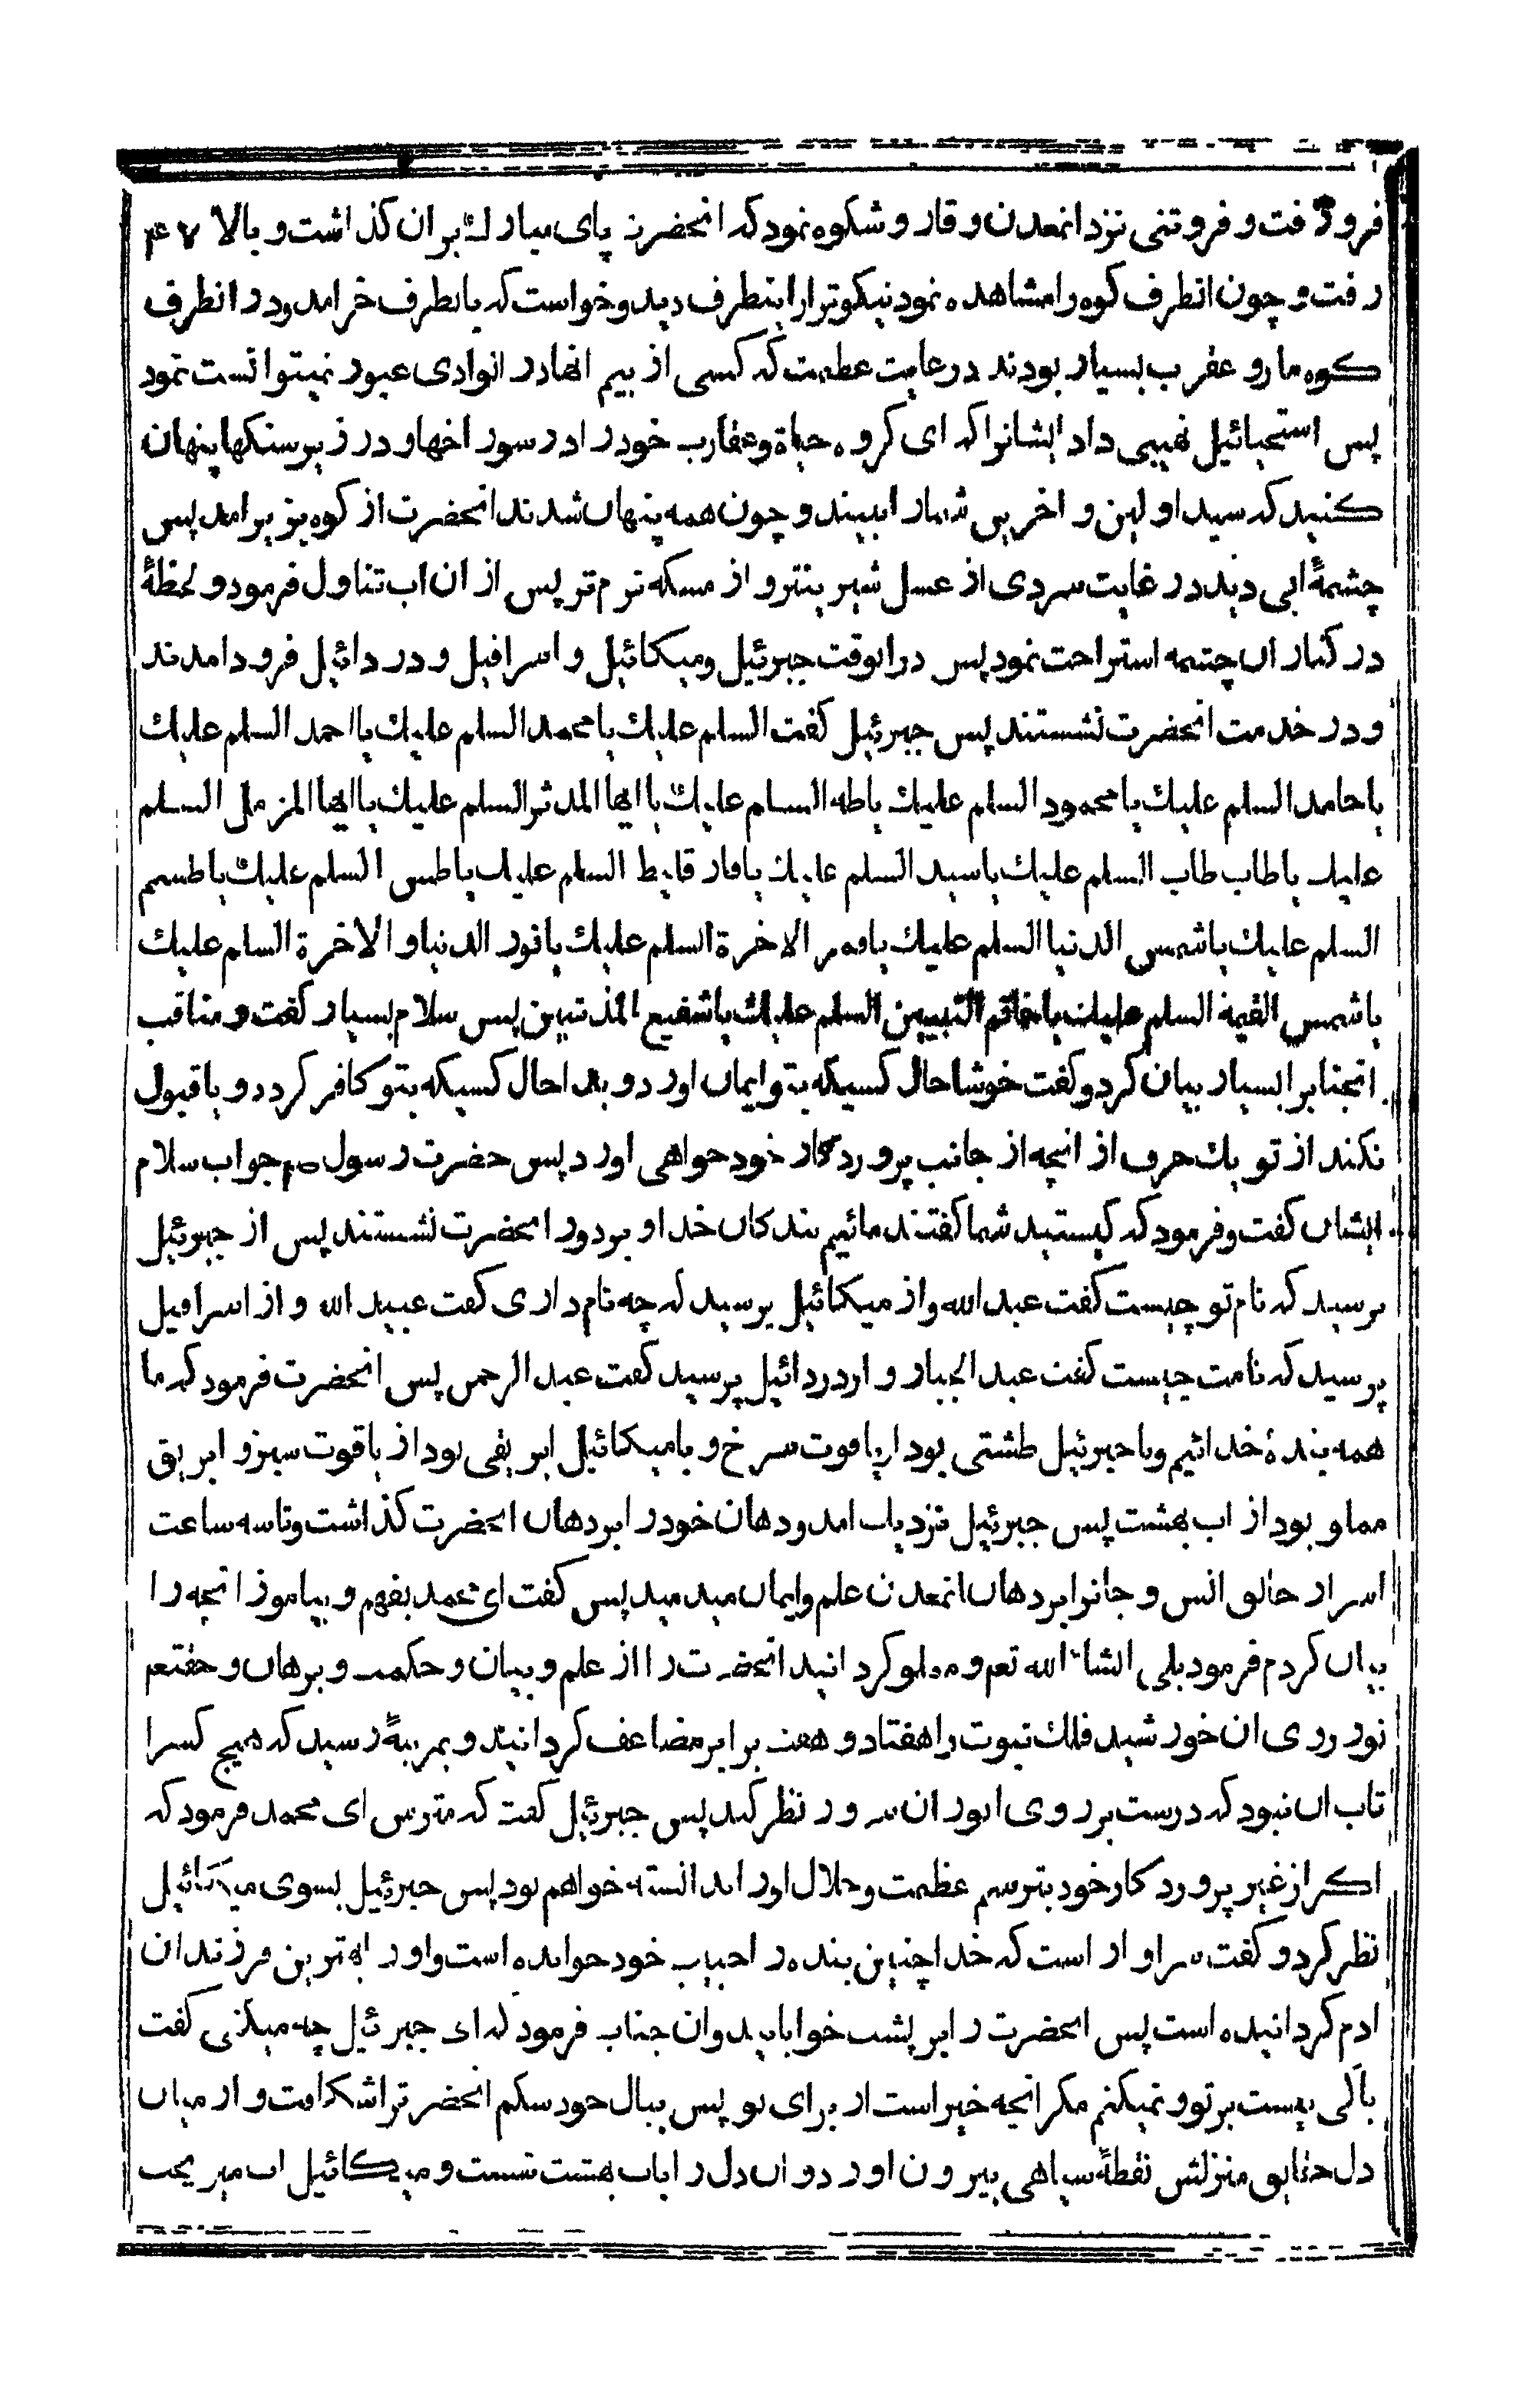 فرو رفت و فروتنی نزد انمعدن وقار و شکوه نمود که انحضرت پای مبارك بر ان کذاشت و بالا ۴۷
رفت و چون انطرف کوه را مشاهده نمود نیکوتر از اینطرف دید و خواست که بانطرف خرامد و در انطرف
کوه مار و عقرب بسیار بودند در غایت عظمت که کسی از بیم انها در انوادی عبور نمیتوانست نمود
پس استحیائیل نهیبی داد ایشانرا که ای کروه حیاة و عقارب خود را در سوراخها و در زیر سنکها پنهان
کنید که سید اولین و اخرین شما را نبیند و چون همه پنهان شدند انحضرت از کوه بزیر امد پس
چشمهٔ ابی دید در غایت سردی از عسل شیرینتر و از مسکه نرم‌تر پس از ان اب تناول فرمود و لحظهٔ
در کنار ان چشمه استراحت نمود پس در انوقت جبرئیل و میکائیل و اسرافیل و دردائیل فرود امدند
و در خدمت انحضرت نشستند پس جبرئیل کفت السلم علیك یا محمد السلم علیك یا احمد السلم علیك
یا حامد السلم علیك یا محمود السلم علیك یا طه السلم علیك یا ایها المدثر السلم علیك یا ایها المزمل السلم
علیك یا طاب طاب السلم علیك یا سید السلم علیك یا فارقلیط السلم علیك یا طس السلم علیك یا طسم
السلم علیك یا شمس الدنیا السلم علیك یا قمر الاخرة السلم علیك یا نور الدنیا و الاخرة السلم علیك
یا شمس القیمة السلم علیك یا خاتم النبیین السلم علیك یا شفیع المذنبین پس سلام بسیار کفت و مناقب
انجنابرا بسیار بیان کرد و کفت خوشا حال کسیکه بتو ایمان اورد و بدا حال کسیکه بتو کافر کردد و یا قبول
نکند از تو یك حرف از انچه از جانب پروردکار خود خواهی اورد پس حضرت رسول ص جواب سلام
ایشان کفت و فرمود که کیستید شما کفتند مائیم بندکان خدا و بر دور انحضرت نشستند پس از جبرئیل
پرسید که نام تو چیست کفت عبد الله و از میکائیل پرسید که چه نام داری کفت عبید الله و از اسرافیل
پرسید که نامت چیست کفت عبد الجبار و از دردائیل پرسید کفت عبد الرحمن پس انحضرت فرمود که ما
همه بندهٔ خدائیم و با جبرئیل طشتی بود از یاقوت سرخ و با میکائیل ابریقی بود از یاقوت سبز و ابریق
مملو بود از اب بهشت پس جبرئیل نزدیك امد و دهان خود را بر دهان انحضرت کذاشت و تا سه ساعت
اسرار خالق انس و جانرا بر دهان انمعدن علم و ایمان میدمید پس کفت ای محمد بفهم و بیاموز انچه را
بیان کردم فرمود بلی انشاء الله تعم و مملو کردانید انحضرت را از علم و بیان و حکمت و برهان و حقتعم
نور روی ان خورشید فلك نبوت را هفتاد و هفت برابر مضاعف کردانید و بمرتبهٔ رسید که هیچ کسرا
تاب ان نبود که درست بر روی انور ان سرور نظر کند پس جبرئیل کفت که مترس ای محمد فرمود که
اکر از غیر پروردکار خود بترسم عظمت و جلال او را ندانسته خواهم بود پس جبرئیل بسوی میکائیل
نظر کرد و کفت سزاوار است که خدا چنین بنده را حبیب خود خوانده است و او را بهترین فرزندان
ادم کردانیده است پس انحضرت را بر پشت خوابانید و ان جناب فرمود که ای جبرئیل چه میکنی کفت
باکی نیست بر تو و نمیکنم مکر انچه خیر است از برای تو پس ببال خود شکم انحضرترا شکافت و از میان
دل حقایق منزلش نقطهٔ سیاهی بیرون اورد و ان دل را باب بهشت شست و میکائیل اب میریخت